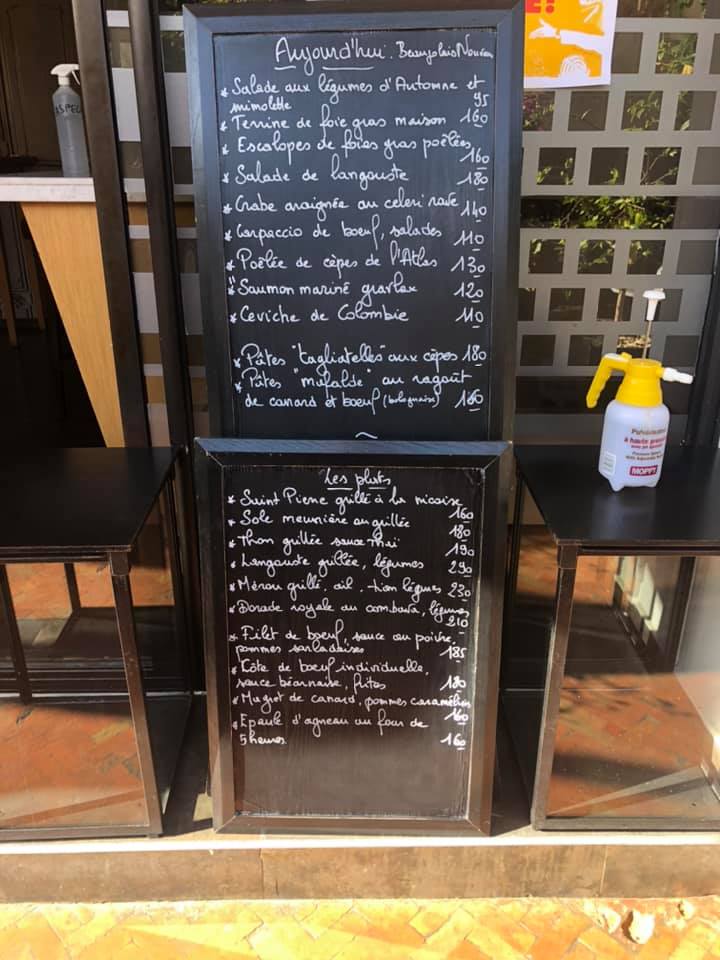 ASPEL
Aujourd'hui: Beaujolais Nouveau
* Salade aux légumes d'Automne et
mimolette 95
* Terrine de foie gras maison 160
* Escalopes de foies gras poêlées
160
* Salade de langouste 180
* Crabe araignée au celeri rave 140
* Carpaccio de boeuf, salades 110
* Poêlée de cèpes de l'Atlas 130
* Saumon mariné gravlax 120
* Ceviche de Colombie 110
* Pâtes "tagliatelles" aux cèpes 180
* Pâtes "mafalde" au ragoût
de canard et boeuf (bolognaise) 160
Les plats
* Saint Pierre grillé à la nicoise
160
* Sole meunière ou grillée
180
* Thon grillée sauce Thai
190
* Langouste grillée, légumes 290
* Mérou grillé, ail, tian légumes 230
* Dorade royale au combava, légumes
210
* Filet de boeuf, sauce au poivre,
pommes sarladaises 185
* Côte de boeuf individuelle,
sauce béarnaise, frites 180
* Magret de canard, pommes caramélisées
160
* Epaule d'agneau au four de
5 heures 160
Pulvérisateur
à haute pression
MOPPY